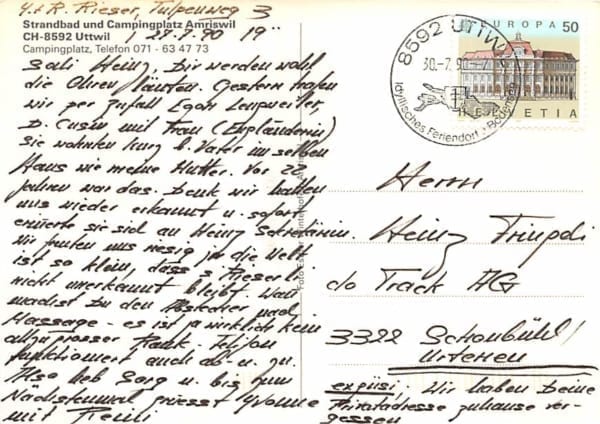 Y. + R. Rieser, Tulpenweg 3
Strandbad und Campingplatz Amriswil
CH-8592 Uttwil, 27.7.90 19⁰⁰
Campingplatz, Telefon 071 - 63 47 73
Sali Heinz, Dir werden wohl
die Ohren läuten. Gestern trafen
wir per Zufall Egon
D. Cusin mit Frau (Engländerin)
sie wohnten kurz b. Vater im selben
Haus wie meine Mutter. Vor 22
Jahren war das. Denk wir hatten
uns wieder erkannt u. sofort
erinnerte sie sich an Heinz Sekretärin.
Wir freuten uns riesig ja die Welt
ist so klein, dass s Rieserli
nicht unerkannt bleibt. Wann
machst Du den Abstecher nach
Massage - es ist ja wirklich kein
allzugrosser Rank. Telefon
funktioniert auch ab- u. zu.
Also heb Sorg u. bis zum
Nächstenmal grüesst Yvonne
mit Reuli
8592 UTTWIL
30.-7.90.-7
Idyllisches Feriendorf · Bodensee
EUROPA 50
HELVETIA
Herrn
Heinz
c/o Track AG
3322 Schönbühl/
Urtenen
expüsi, Wir haben Deine
Privatadresse zuhause ver-
gessen
Foto